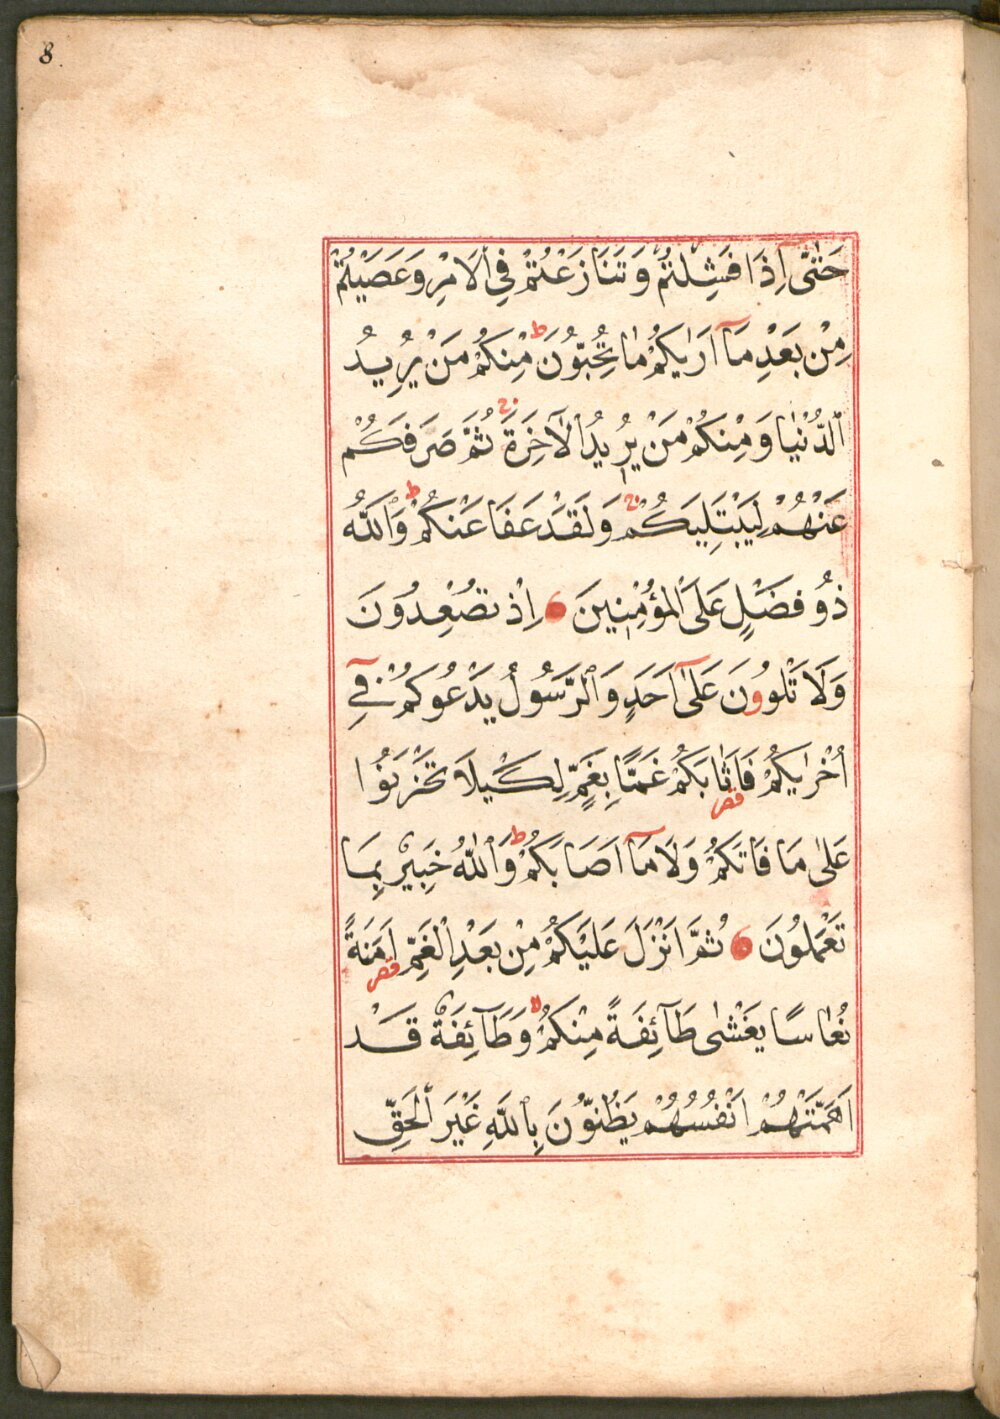 8
حَتّٰٓى اِذَا فَشِلْتُمْ وَتَنَازَعْتُمْ فِي الْاَمْرِ وَعَصَيْتُمْ
مِنْ بَعْدِ مَٓا اَرٰيكُمْ مَا تُحِبُّونَ ط مِنْكُمْ مَنْ يُرِيدُ
الدُّنْيَا وَمِنْكُمْ مَنْ يُرِيدُ الْاٰخِرَةَ ج ثُمَّ صَرَفَكُمْ
عَنْهُمْ لِيَبْتَلِيَكُمْ ج وَلَقَدْ عَفَا عَنْكُمْ ط وَاللّٰهُ
ذُو فَضْلٍ عَلَى الْمُؤْمِنِينَ اِذْ تُصْعِدُونَ
وَلَا تَلْوُونَ عَلٰٓى اَحَدٍ وَالرَّسُولُ يَدْعُوكُمْ فِٓي
اُخْرٰيكُمْ فَاَثَابَكُمْ غَمًّا بِغَمٍّ لِكَيْلَا تَحْزَنُوا
قصر
عَلٰى مَا فَاتَكُمْ وَلَا مَٓا اَصَابَكُمْ ط وَاللّٰهُ خَبِيرٌ بِمَا
تَعْمَلُونَ ثُمَّ اَنْزَلَ عَلَيْكُمْ مِنْ بَعْدِ الْغَمِّ اَمَنَةً
قصر
نُعَاسًا يَغْشٰى طَٓائِفَةً مِنْكُمْ لا وَطَٓائِفَةٌ قَدْ
اَهَمَّتْهُمْ اَنْفُسُهُمْ يَظُنُّونَ بِاللّٰهِ غَيْرَ الْحَقِّ